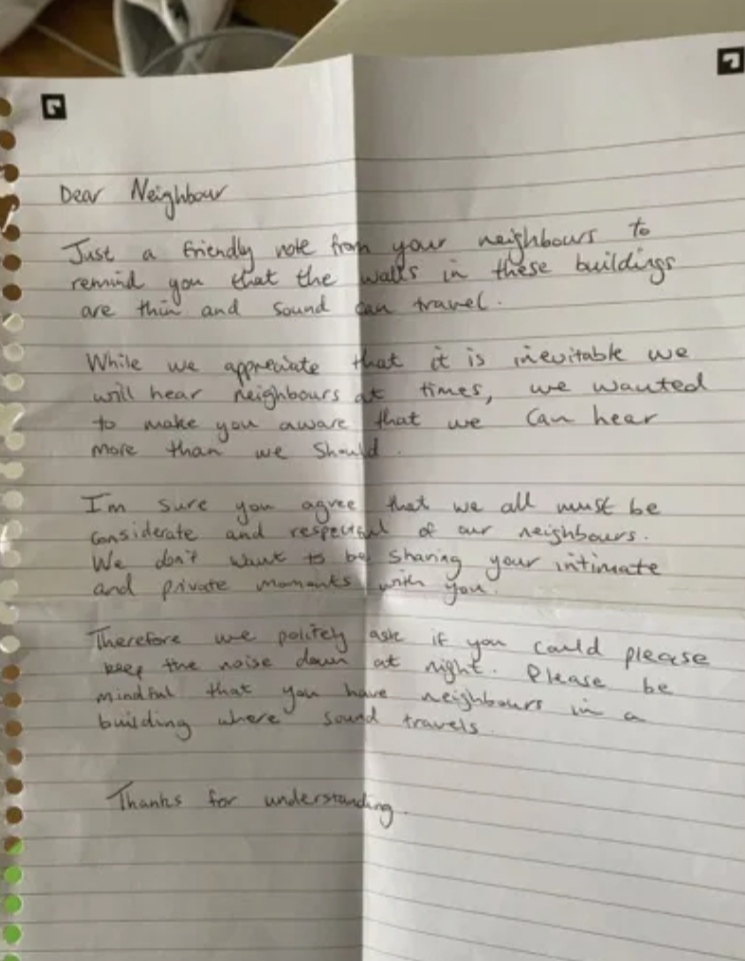 Dear Neighbour
Just a friendly note from your neighbours to
remind you that the walls in these buildings
are thin and sound can travel.
While we appreciate that it is inevitable we
will hear neighbours at times, we wanted
to make you aware that we can hear
more than we should.
I'm sure you agree that we all must be
considerate and respectful of our neighbours.
We don't want to be sharing your intimate
and private moments with you.
Therefore we politely ask if you could please
keep the noise down at night. Please be
mindful that you have neighbours in a
building where sound travels.
Thanks for understanding.